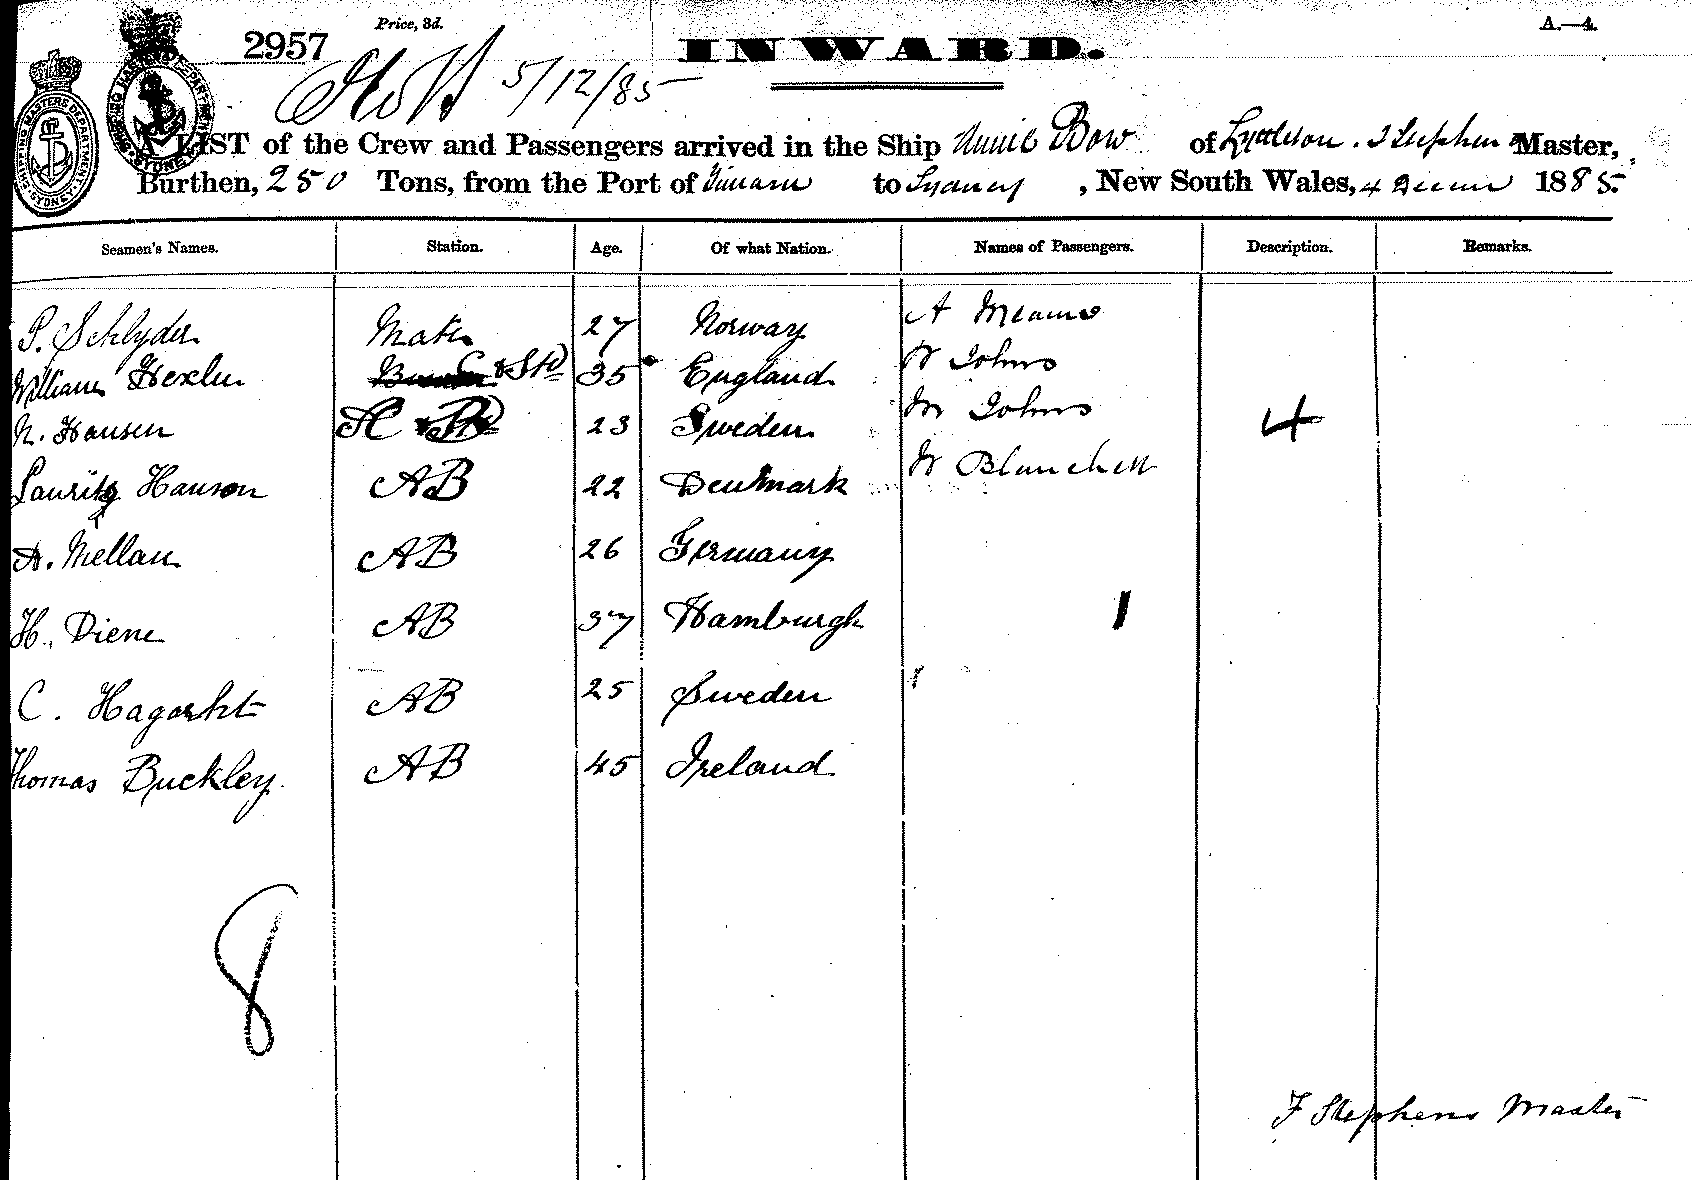 Price, 3d.
A.—4.
2957
INWARD.
5/12/85
A LIST of the Crew and Passengers arrived in the Ship Annie Bow of Lyttleton. F Stephens Master,
Burthen, 250 Tons, from the Port of Timaru to Sydney, New South Wales, 4 1885.
Seamen's Names. Station. Age. Of what Nation. Names of Passengers. Description. Remarks.
P. Schlyder Mate 27 Norway A Mearns
William 35 England W Johns
N. Hansen 23 Sweden M Johns 4
Lauritz Hanson AB 22 Denmark W Blanchett
A. Mellan AB 26 Germany
H. Diene AB 37 Hamburgh
1
C. AB 25 Sweden
Thomas Buckley. AB 45 Ireland
8
F Stephens Master